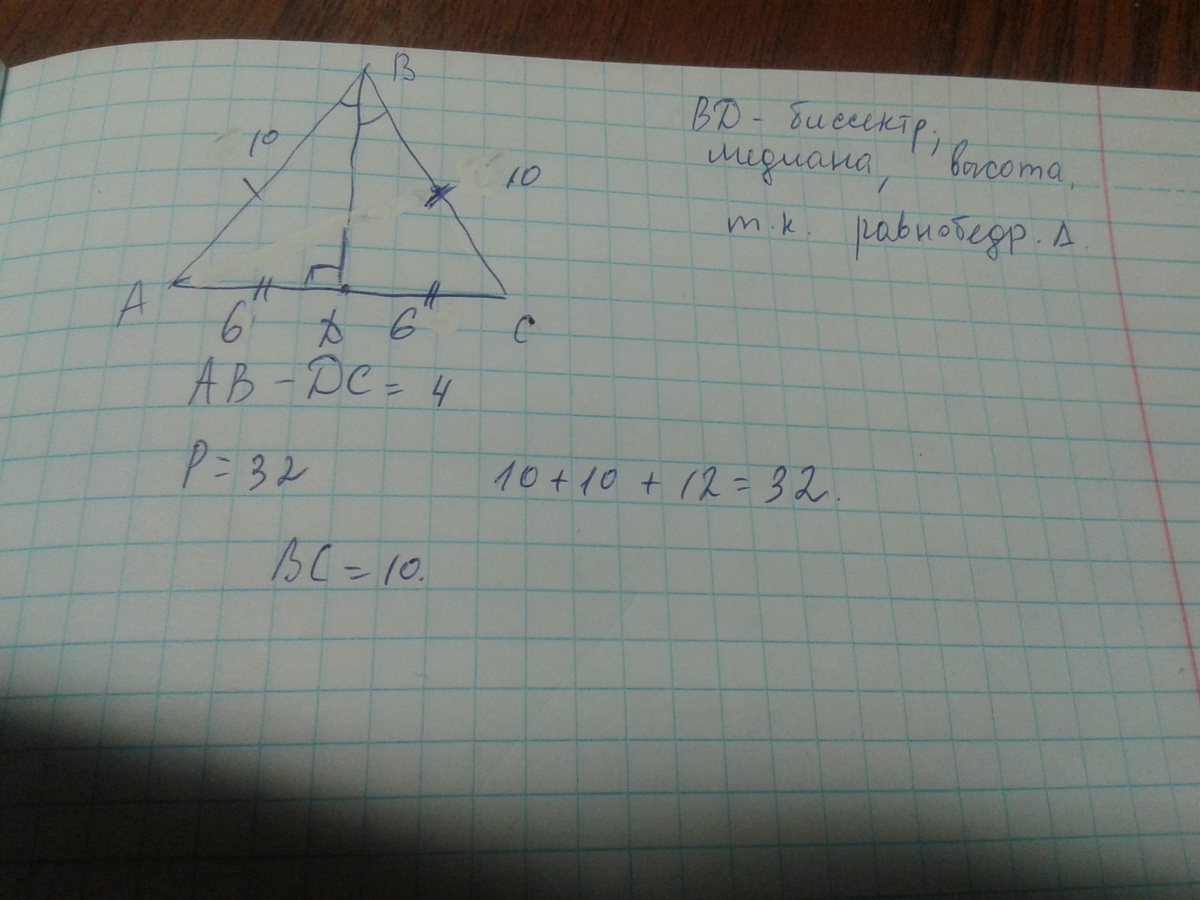 B
10
10
A
6
D
6
C
BD - биссектр.,
медиана, высота,
т.к. равнобедр. Δ.
AB - DC = 4
P = 32
10 + 10 + 12 = 32.
BC = 10.